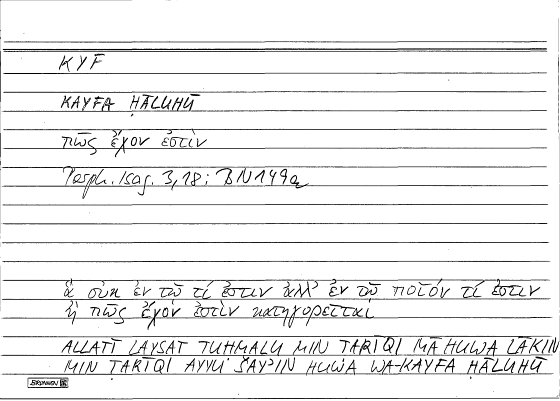 KYF
KAYFA ḤĀLUHŪ
πῶς ἔχον ἐστὶν
Porph. Isag. 3,18 ; BN 149a
ἃ οὐκ ἐν τῷ τί ἐστιν ἀλλ' ἐν τῷ ποῖόν τί ἐστιν
ἢ πῶς ἔχον ἐστὶν κατηγορεῖται
ALLATĪ LAYSAT TUḤMALU MIN ṬARĪQI MĀ HUWA LĀKIN
MIN ṬARĪQI AYYU ŠAYʾIN HUWA WA-KAYFA ḤĀLUHŪ
BRUNNEN